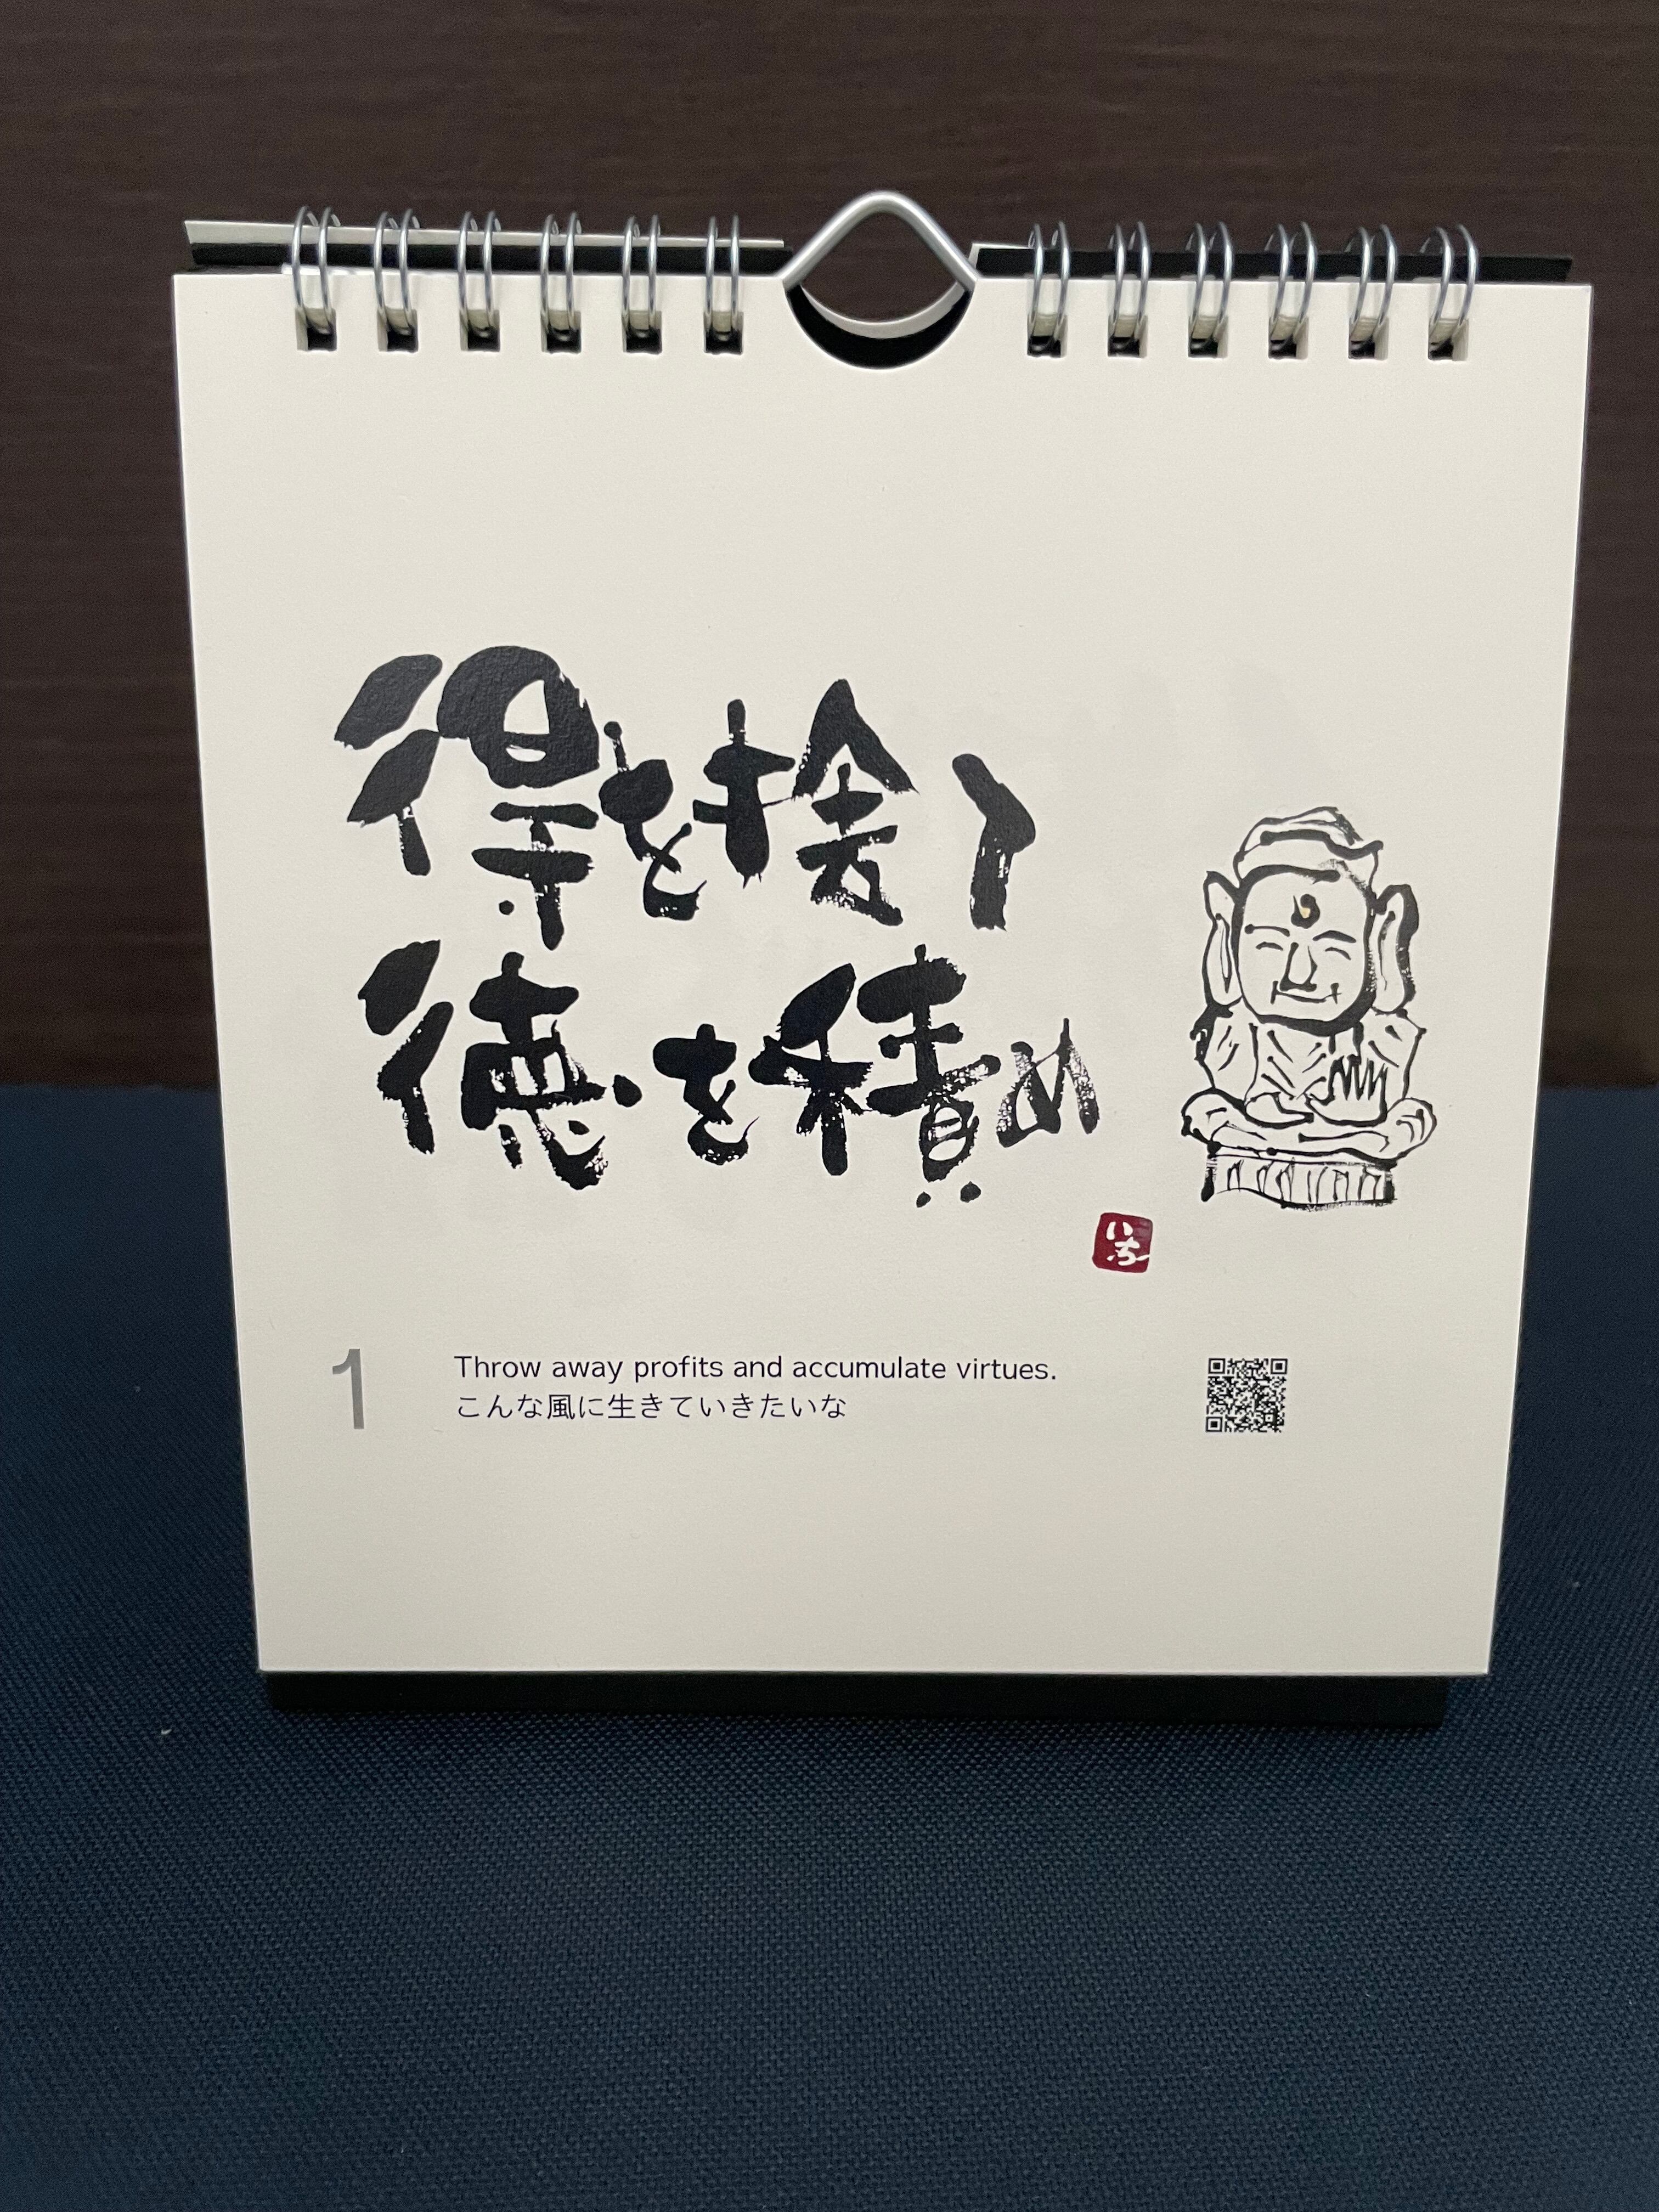 得を捨て
徳を積め
いち
1
Throw away profits and accumulate virtues.
こんな風に生きていきたいな